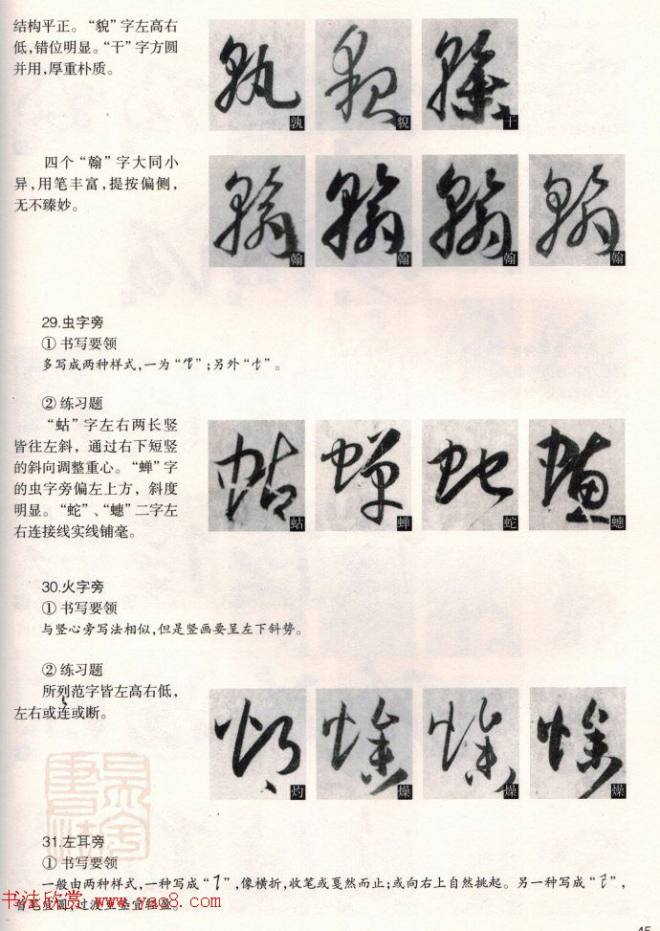 结构平正。“貌”字左高右
低，错位明显。“干”字方圆
并用，厚重朴质。
孰 貌 干
四个“翰”字大同小
异，用笔丰富，提按偏侧，
无不臻妙。
翰 翰 翰 翰
29.虫字旁
① 书写要领
多写成两种样式，一为“”；另外“”。
② 练习题
“蛄”字左右两长竖
皆往左斜，通过右下短竖
的斜向调整重心。“蝉”字
的虫字旁偏左上方，斜度
明显。“蛇”、“蟪”二字左
右连接线实线铺毫。
蛄 蝉 蛇 蟪
30.火字旁
① 书写要领
与竖心旁写法相似，但是竖画要呈左下斜势。
② 练习题
所列范字皆左高右低，
左右或连或断。
灼 燥 燥 燥
31.左耳旁
① 书写要领
一般由两种样式，一种写成“”，像横折，收笔或戛然而止；或向右上自然挑起。另一种写成“”，
书法欣赏 www.yac8.com
45